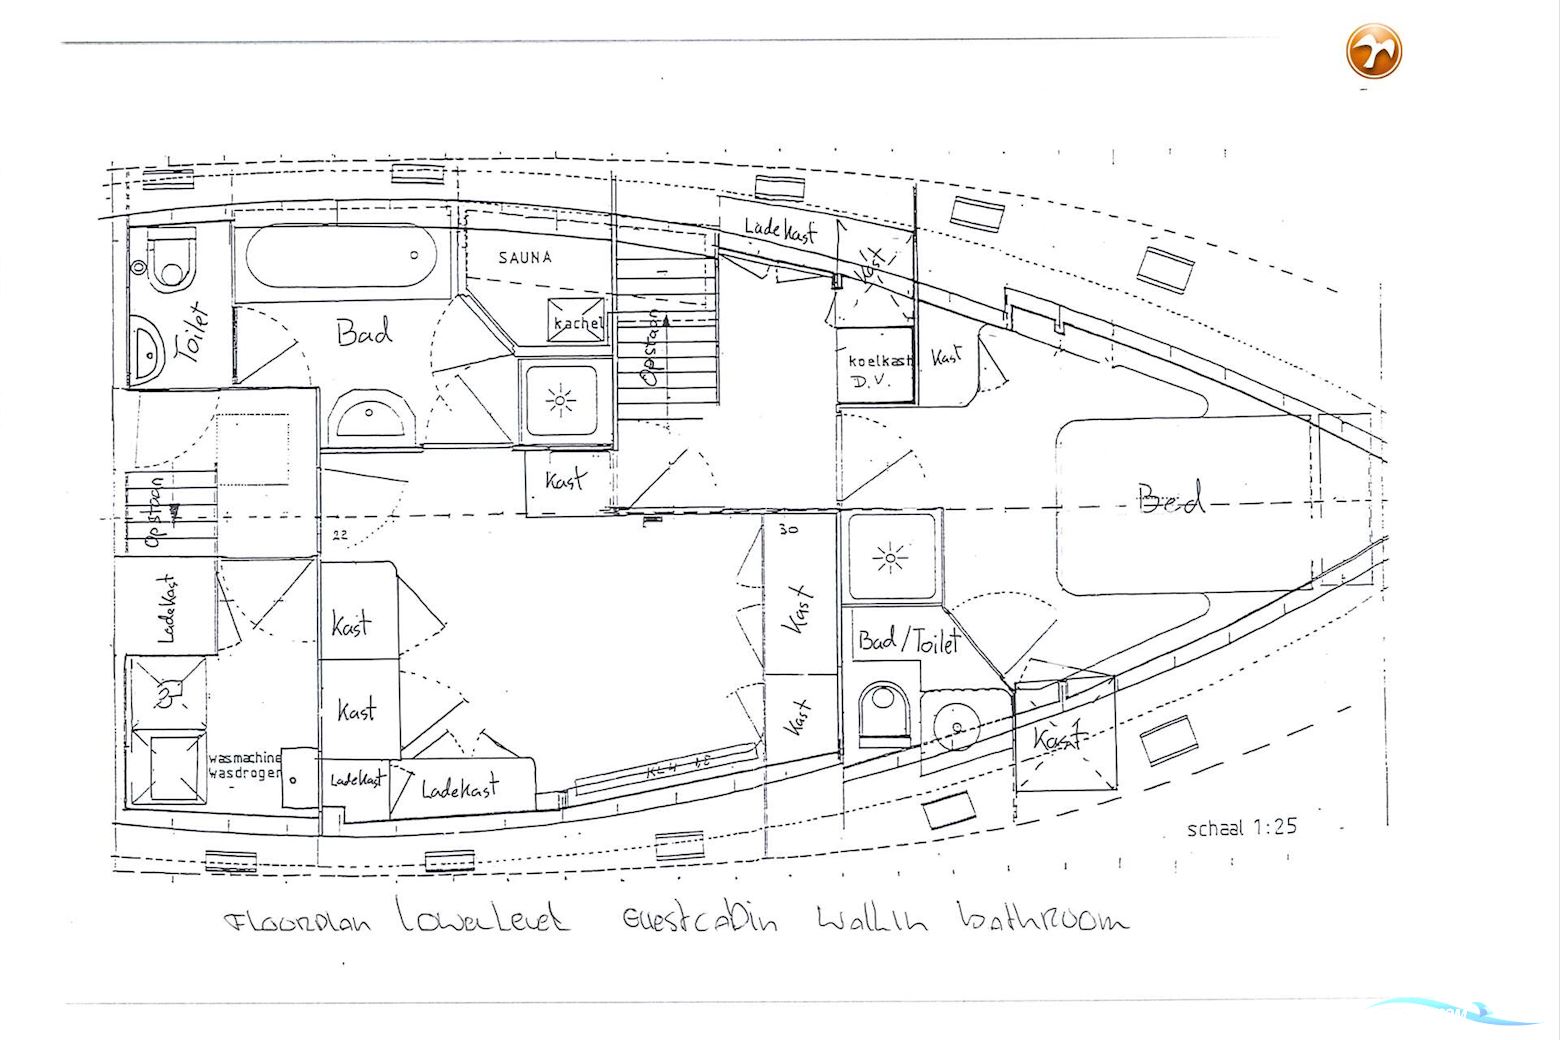 Ladekast
Kast
SAUNA
kachel
Toilet
Bad
Opstaan
koelkast
D.V.
Kast
Kast
Bed
Opstaan
22
30
Ladekast
Kast
Kast
Bad/Toilet
Kast
Kast
Kast
wasmachine
wasdroger
Ladekast
Ladekast
schaal 1:25
Floorplan Lowerlevel Guestcabin Walkin bathroom